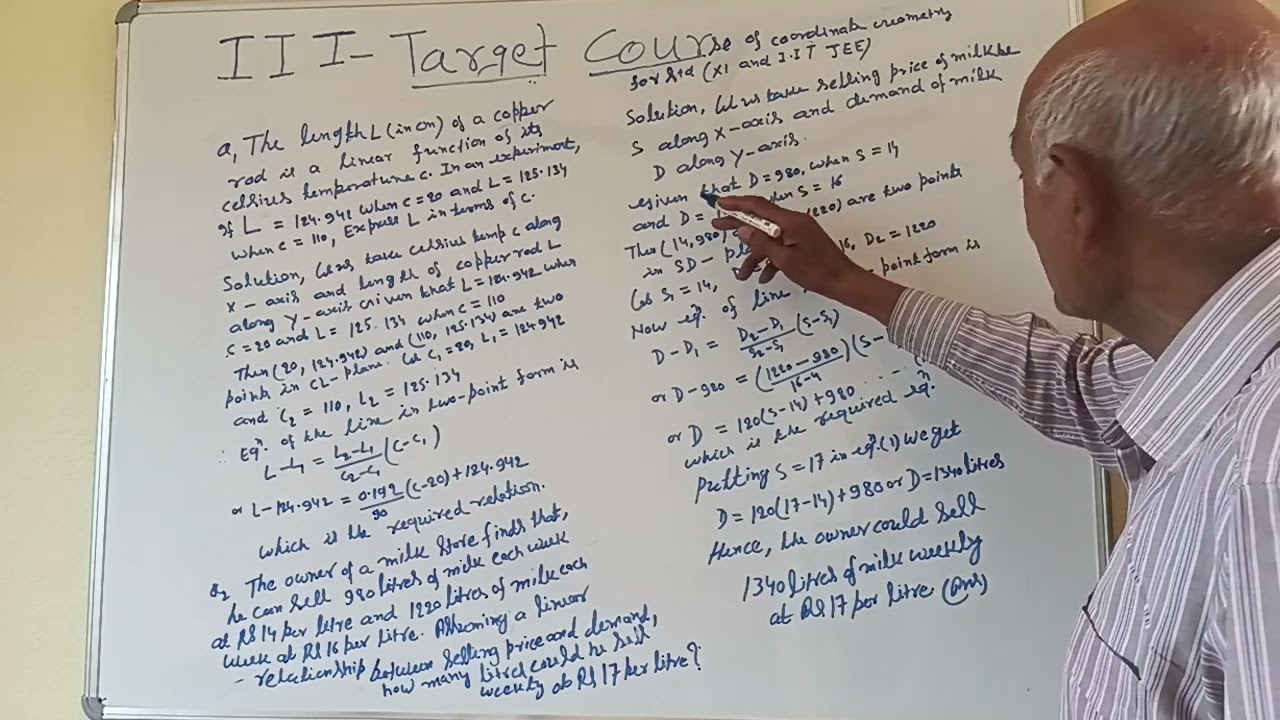 III - Target Course of coordinate Geometry
for std (XI and I.I.T JEE)
Q1 The length L (in cm) of a copper
rod is a linear function of its
celsius temperature C. In an experiment,
if L = 124.942 when C = 20 and L = 125.134
when C = 110, Express L in terms of C.
Solution, Let us take celsius temp C along
X - axis and length of copper rod L
along Y - axis Given that L = 124.942 when
C = 20 and L = 125.134 when C = 110
Then (20, 124.942) and (110, 125.134) are two
points in CL - plane. Let C1 = 20, L1 = 124.942
and C2 = 110, L2 = 125.134
∴ Eqn of the line in two-point form is
L - L1 = L2 - L1 / C2 - C1 (C - C1)
or L - 124.942 = 0.192 / 90 (C - 20) + 124.942
which is the required relation.
Q2 The owner of a milk store finds that,
he can sell 980 litres of milk each week
at RS 14 per litre and 1220 litres of milk each
week at RS 16 per litre. Assuming a linear
- relationship between selling price and demand,
how many litres could he sell
weekly at RS 17 per litre?
Solution, Let us take selling price of milk be
S along X - axis and demand of milk
D along Y - axis.
Given that D = 980, when S = 14
and D = when S = 16
Then (14, 980) 1220) are two points
in SD - pla
Let S1 = 14, 16, D2 = 1220
Now eqn. of line - point form is
D - D1 = D2 - D1 / S2 - S1 (S - S1)
or D - 980 = (1220 - 980 / 16 - 4) (S -
or D = 120 (S - 14) + 980 - - -
which is the required eqn.
Putting S = 17 in eqn. (1) we get
D = 120 (17 - 14) + 980 or D = 1340 litres
Hence, the owner could sell
1340 litres of milk weekly
at RS 17 per litre (Ans)